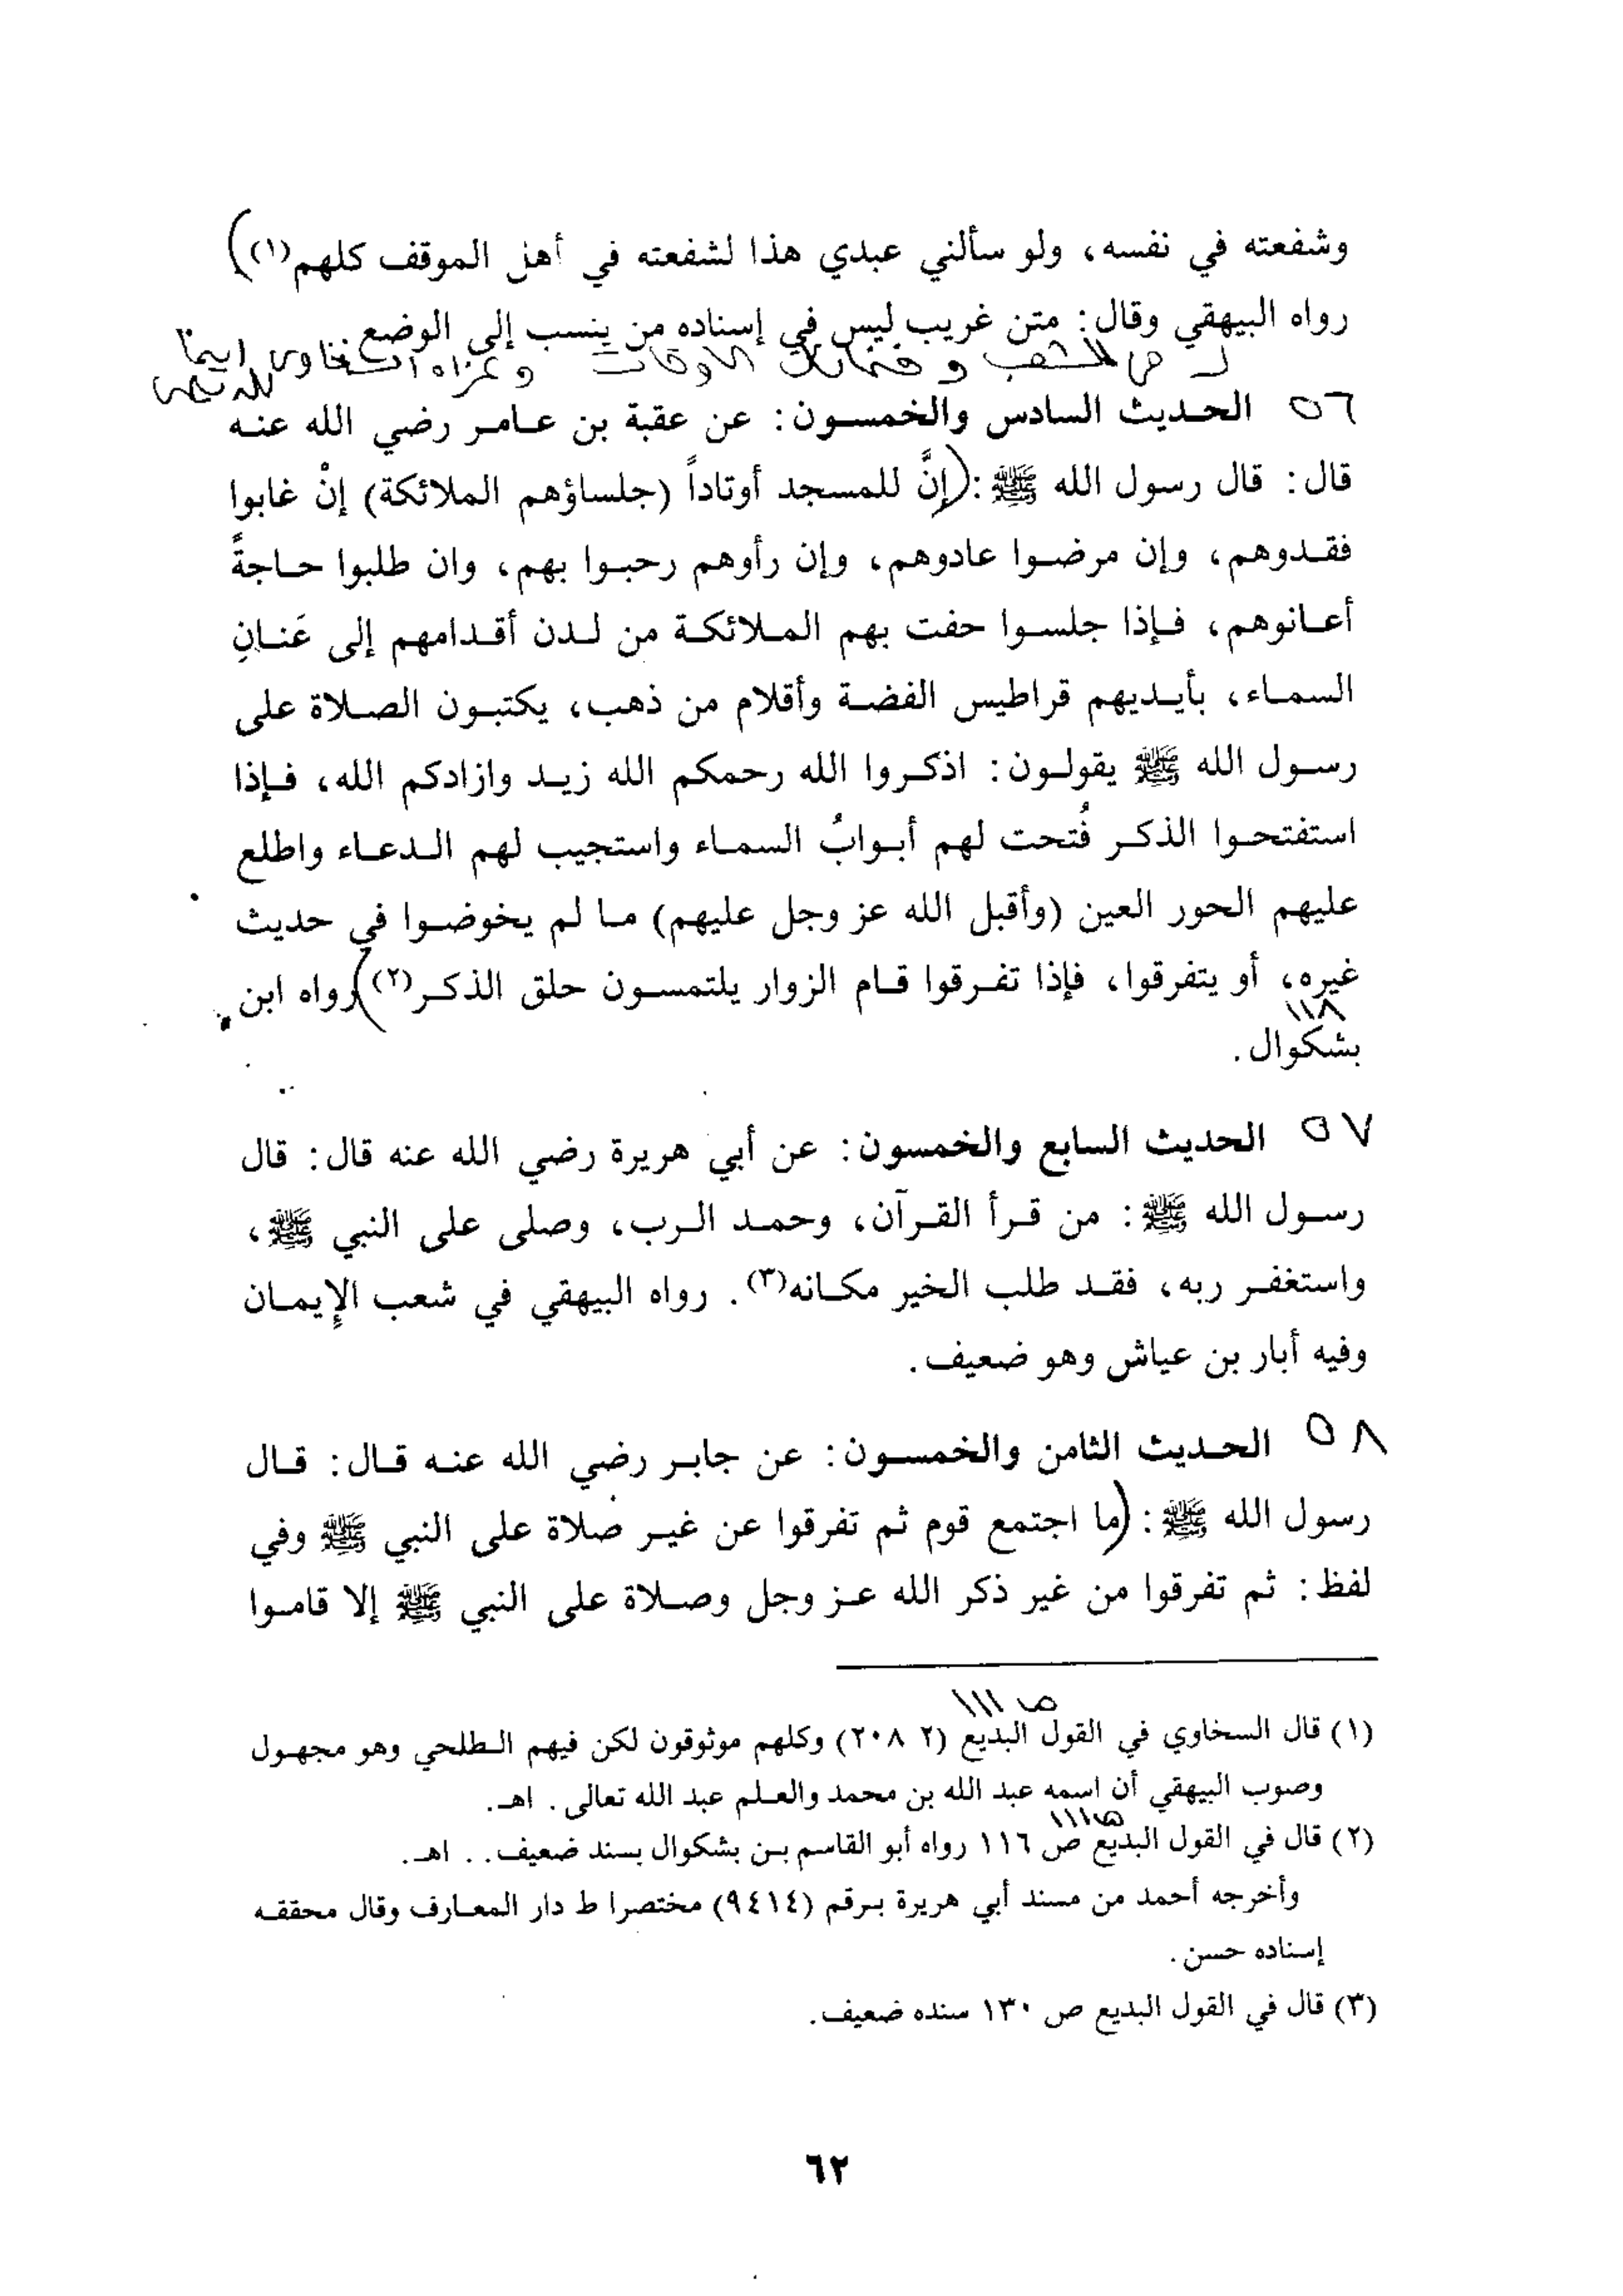 وشفعته في نفسه، ولو سألني عبدي هذا لشفعته في أهل الموقف كلهم(١))
رواه البيهقي وقال: متن غريب ليس في إسناده من ينسب إلى الوضع
في الشعب وفضائل الأوقات وعزاه السخاوي أيضا
للتيمي
٥٦ الحديث السادس والخمسون: عن عقبة بن عامر رضي الله عنه
قال: قال رسول الله ﷺ: (إنَّ للمسجد أوتاداً (جلساؤهم الملائكة) إنْ غابوا
فقدوهم، وإن مرضوا عادوهم، وإن رأوهم رحبوا بهم، وان طلبوا حاجةً
أعانوهم، فإذا جلسوا حفت بهم الملائكة من لدن أقدامهم إلى عَنانِ
السماء، بأيديهم قراطيس الفضة وأقلام من ذهب، يكتبون الصلاة على
رسول الله ﷺ يقولون: اذكروا الله رحمكم الله زيد وازادكم الله، فإذا
استفتحوا الذكر فُتحت لهم أبوابُ السماء واستجيب لهم الدعاء واطلع
عليهم الحور العين (وأقبل الله عز وجل عليهم) ما لم يخوضوا في حديث
غيره، أو يتفرقوا، فإذا تفرقوا قام الزوار يلتمسون حلق الذكر(٢)) رواه ابن
١١٨
بشكوال.
٥٧ الحديث السابع والخمسون: عن أبي هريرة رضي الله عنه قال: قال
رسول الله ﷺ: من قرأ القرآن، وحمد الرب، وصلى على النبي ﷺ،
واستغفر ربه، فقد طلب الخير مكانه(٣). رواه البيهقي في شعب الإيمان
وفيه أبار بن عياش وهو ضعيف.
٥٨ الحديث الثامن والخمسون: عن جابر رضي الله عنه قال: قال
رسول الله ﷺ: (ما اجتمع قوم ثم تفرقوا عن غير صلاة على النبي ﷺ وفي
لفظ: ثم تفرقوا من غير ذكر الله عز وجل وصلاة على النبي ﷺ إلا قاموا
ص ١١١
(١) قال السخاوي في القول البديع (٢ ٢٠٨) وكلهم موثوقون لكن فيهم الطلحي وهو مجهول
وصوب البيهقي أن اسمه عبد الله بن محمد والعلم عبد الله تعالى. اهـ.
ص١١١
(٢) قال في القول البديع ص ١١٦ رواه أبو القاسم بن بشكوال بسند ضعيف.. اهـ.
وأخرجه أحمد من مسند أبي هريرة برقم (٩٤١٤) مختصرا ط دار المعارف وقال محققه
إسناده حسن.
(٣) قال في القول البديع ص ١٣٠ سنده ضعيف.
٦٢